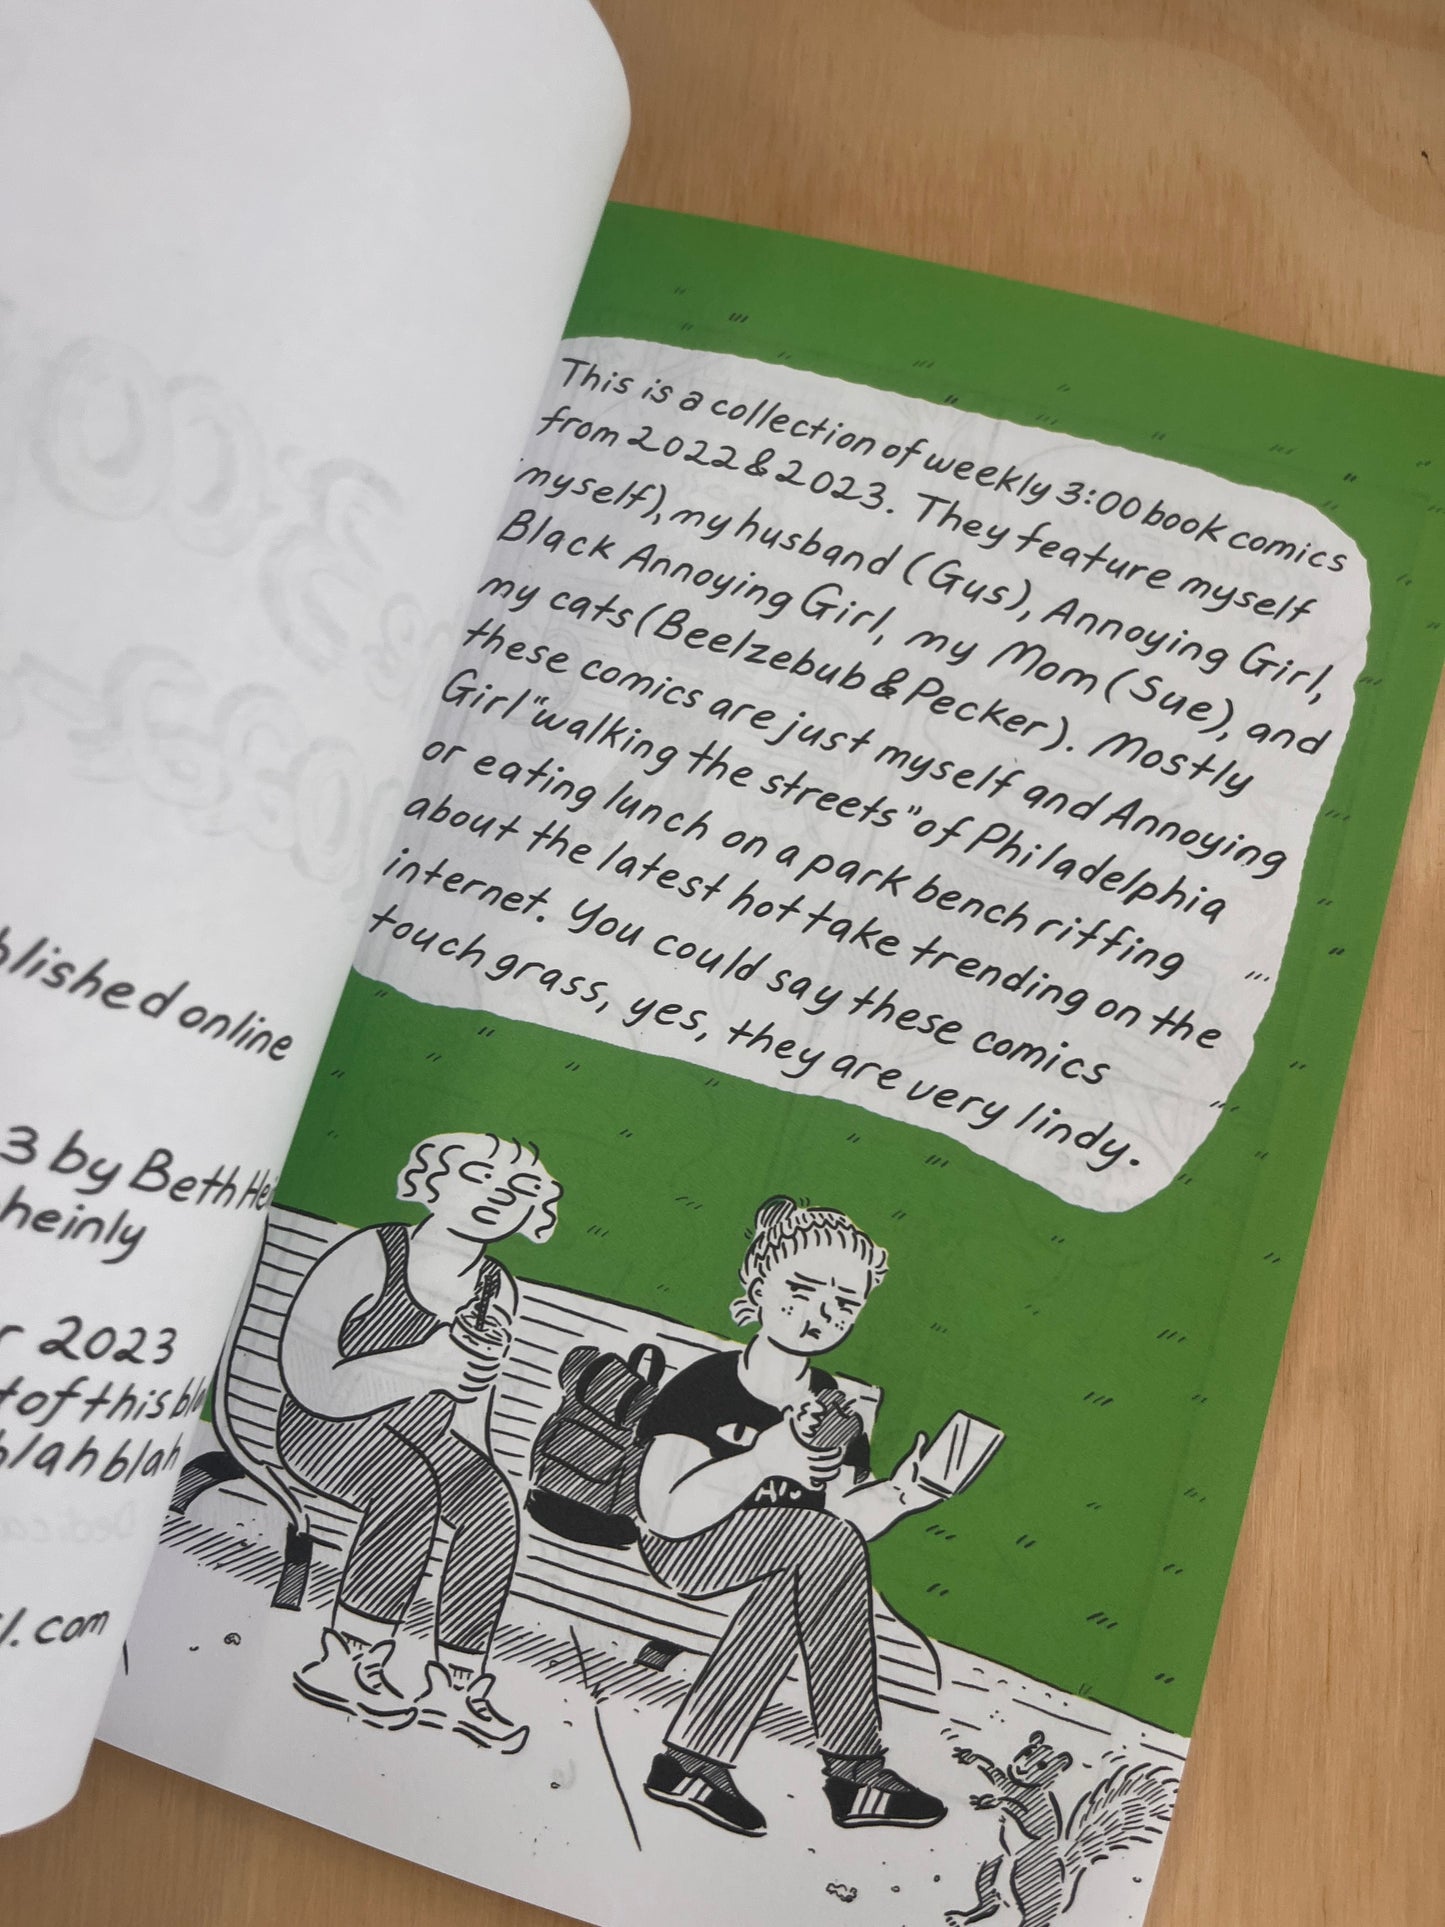 blished online
3 by Beth
heinly
r 2023
t of this
blah blah
.com
This is a collection of weekly 3:00 book comics
from 2022 & 2023. They feature myself
myself), my husband (Gus), Annoying Girl,
Black Annoying Girl, my Mom (Sue), and
my cats (Beelzebub & Pecker). Mostly
these comics are just myself and Annoying
Girl "walking the streets" of Philadelphia
or eating lunch on a park bench riffing
about the latest hot take trending on the
internet. You could say these comics
touch grass, yes, they are very lindy.